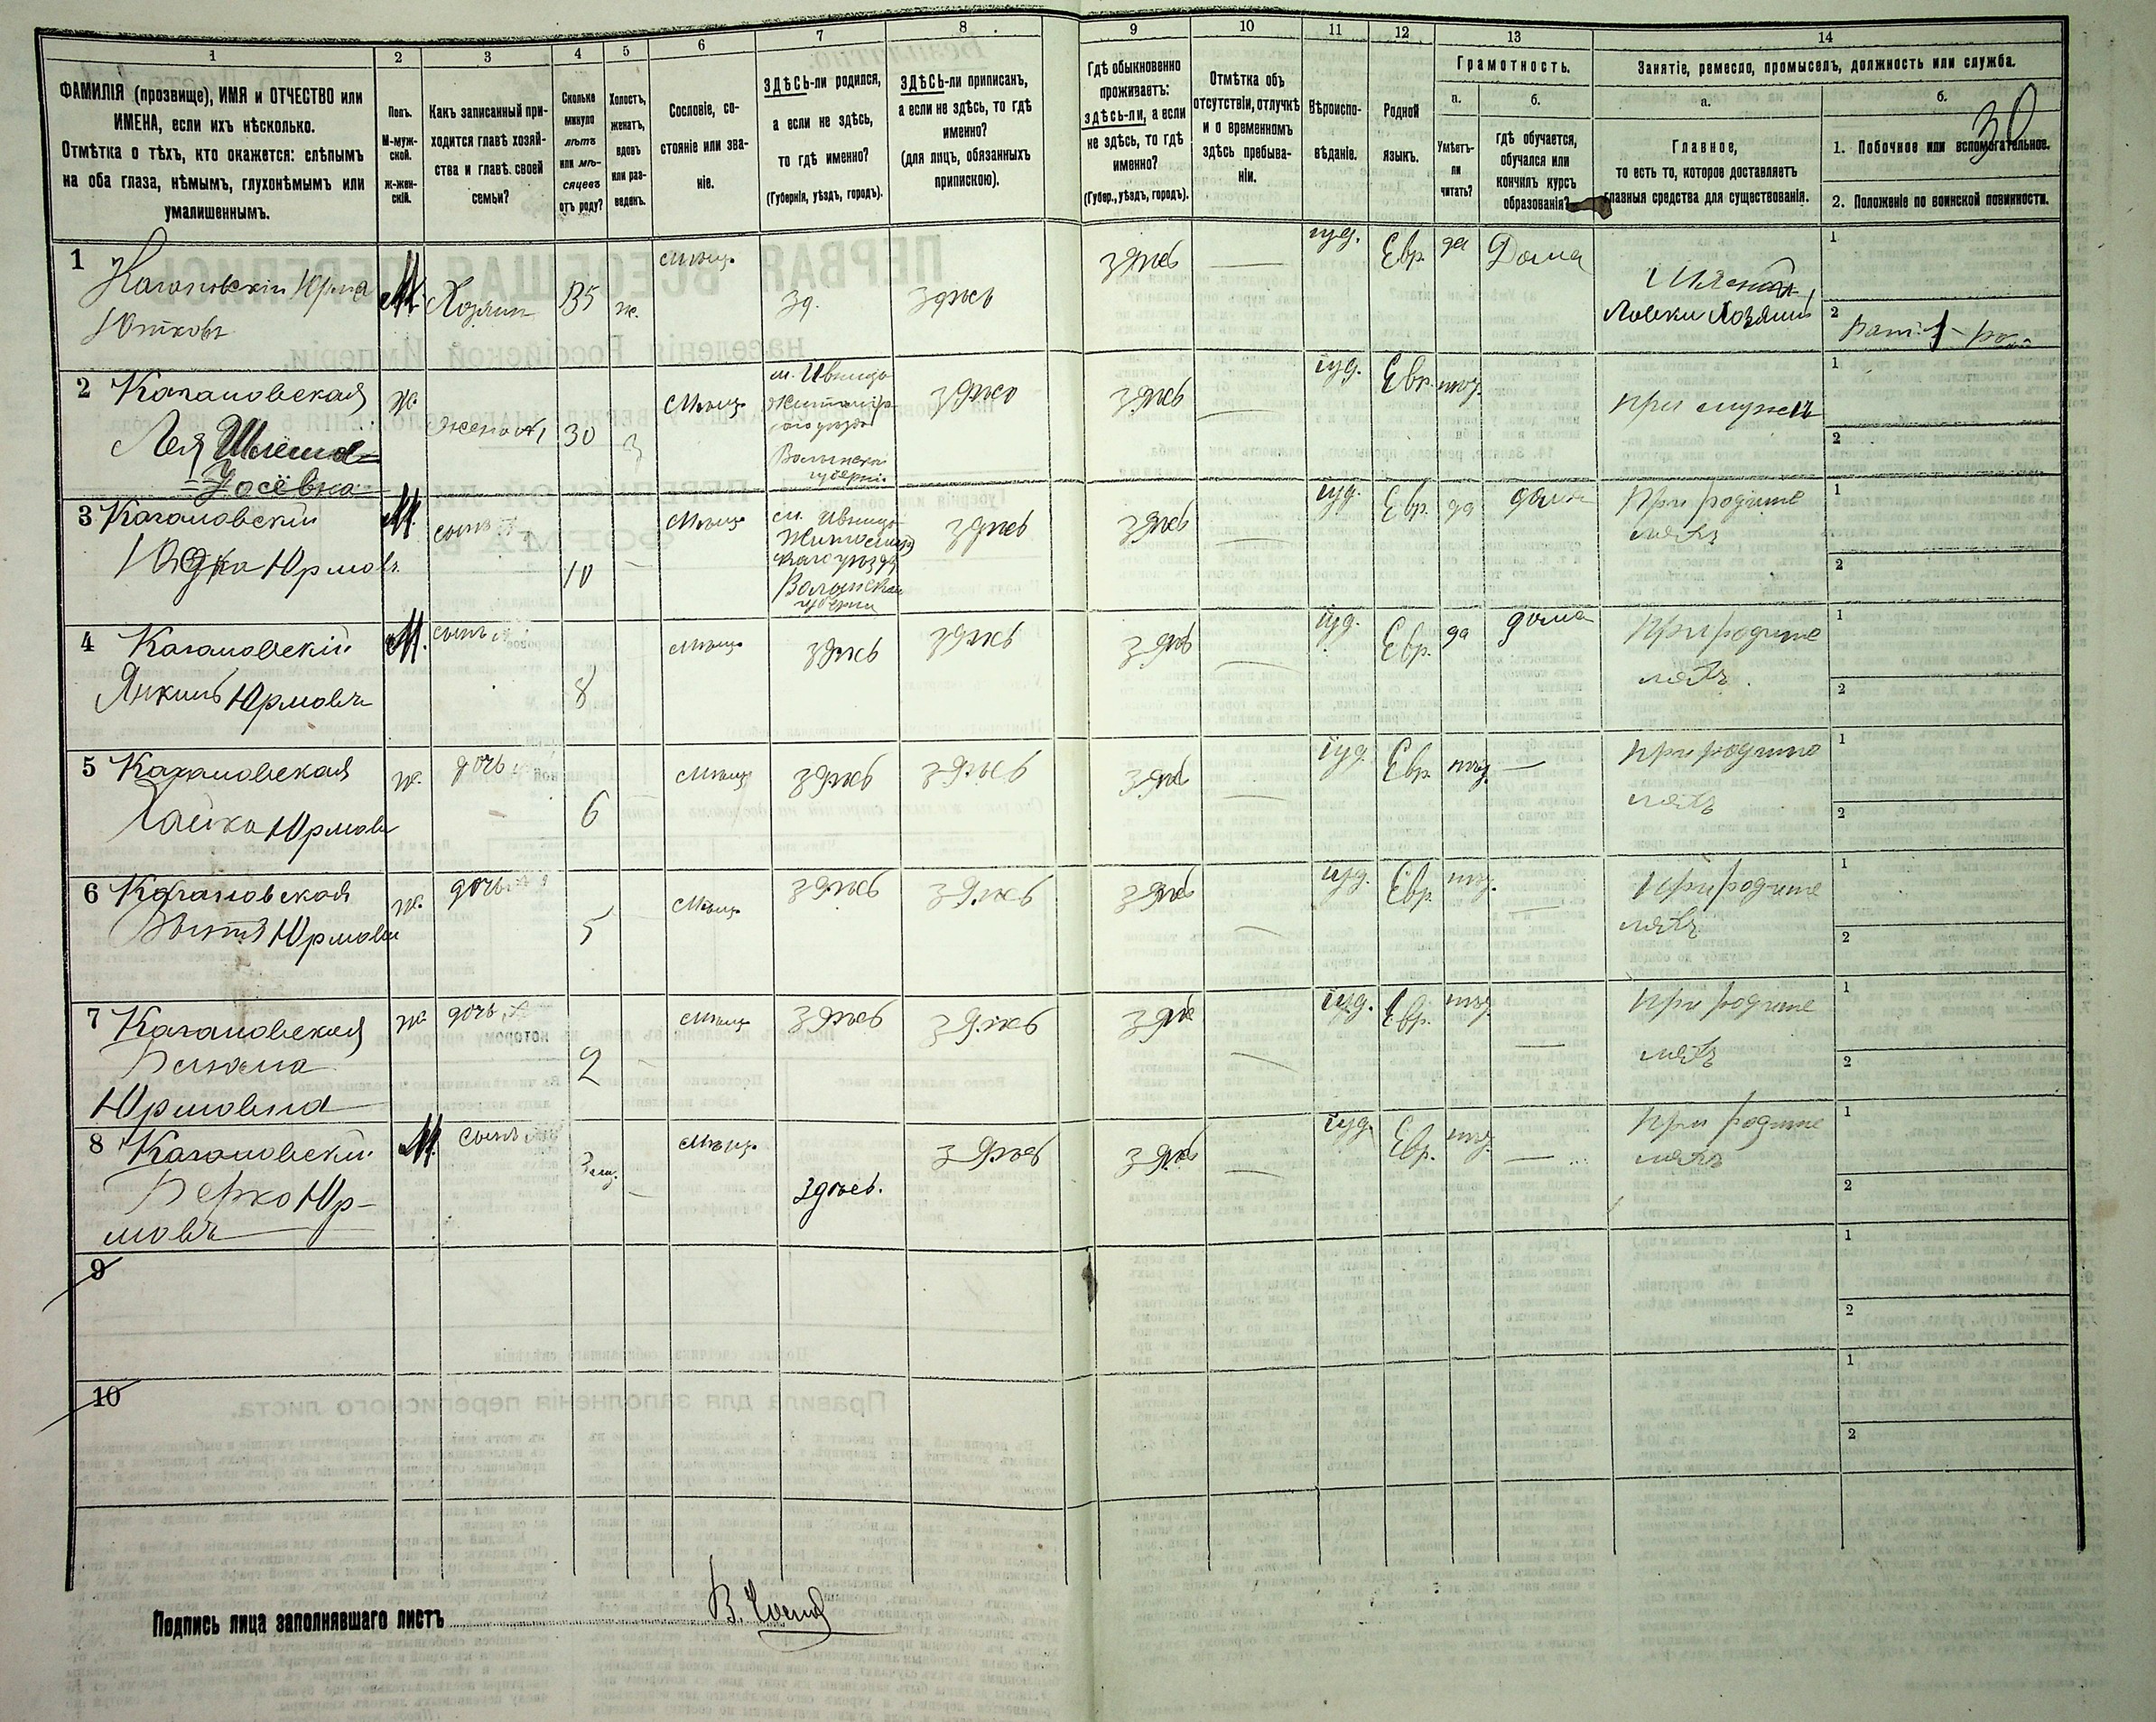 1 2 3 4 5 6 7 8 9 10 11 12 13 14
ФАМИЛІЯ (прозвище), ИМЯ и ОТЧЕСТВО или
ИМЕНА, если ихъ нѣсколько.
Отмѣтка о тѣхъ, кто окажется: слѣпымъ
на оба глаза, нѣмымъ, глухонѣмымъ или
умалишеннымъ.
Полъ.
М-муж-
ской.
Ж-жен-
скій.
Какъ записанный при-
ходится главѣ хозяй-
ства и главѣ своей
семьи?
Сколько
минуло
лѣтъ
или мѣ-
сяцевъ
отъ роду?
Холостъ,
женатъ,
вдовъ
или раз-
веденъ.
Сословіе, со-
стояніе или зва-
ніе.
ЗДѢСЬ-ли родился,
а если не здѣсь,
то гдѣ именно?
(Губернія, уѣздъ, городъ).
ЗДѢСЬ-ли приписанъ,
а если не здѣсь, то гдѣ
именно?
(для лицъ, обязанныхъ
припискою).
Гдѣ обыкновенно
проживаетъ:
здѣсь-ли, а если
не здѣсь, то гдѣ
именно?
(Губер., уѣздъ, городъ).
Отмѣтка объ
отсутствіи, отлучкѣ
и о временномъ
здѣсь пребыва-
ніи.
Вѣроиспо-
вѣданіе.
Родной
языкъ.
Грамотность.
а.
Умѣетъ-
ли
читать?
б.
гдѣ обучается,
обучался или
кончилъ курсъ
образованія?
Занятіе, ремесло, промыселъ, должность или служба.
а.
Главное,
то есть то, которое доставляетъ
главныя средства для существованія.
б.
30
1. Побочное или вспомогательное.
2. Положеніе по воинской повинности.
1 Кагановскій Юрма
М. Хозяинъ 35 ж. мѣщ. зд. здѣсь здѣсь — іуд. Евр. да Дома
лавки хозяинъ
1
2
2 Кагановская
Лея Шлёма-
Іосевна
ж. жена №1 30 з мѣщ.
м. Ивница
Житомір-
скаго уѣзда
Волынской
губерніи
здѣсь здѣсь — іуд. Евр. нѣт. при мужѣ
1
2
3 Кагановскій
Юдка Юрмовъ
М. сынъ 10 — мѣщ.
м. Ивница
Житомир
скаго уѣзда
Волынской
губерніи
здѣсь здѣсь — іуд. Евр. да дома При родите
ляхъ
1
2
4 Кагановскій
Янкиль Юрмовъ
М. сынъ 8 мѣщ. здѣсь здѣсь здѣсь — іуд. Евр. да дома При родите
ляхъ.
1
2
5 Кагановская
Хайка Юрмовн
ж. дочь 6 мѣщ. здѣсь здѣсь здѣсь — іуд. Евр. нѣт. — При родите
ляхъ
1
2
6 Кагановская
Юрмовн
ж. дочь 5 мѣщ. здѣсь здѣсь здѣсь — іуд. Евр. нѣт. — При родите
ляхъ
1
2
7 Кагановская
Юрмовна
ж. дочь 2 — мѣщ. здѣсь здѣсь здѣсь — іуд. Евр. нѣт. — При родите
ляхъ
1
2
8 Кагановскій
Берко Юр-
мовъ
М. сынъ мѣщ. здѣсь. здѣсь здѣсь — іуд. Евр. нѣт. — При родите
ляхъ
1
2
9
1
2
10
1
2
Подпись лица заполнявшаго листъ